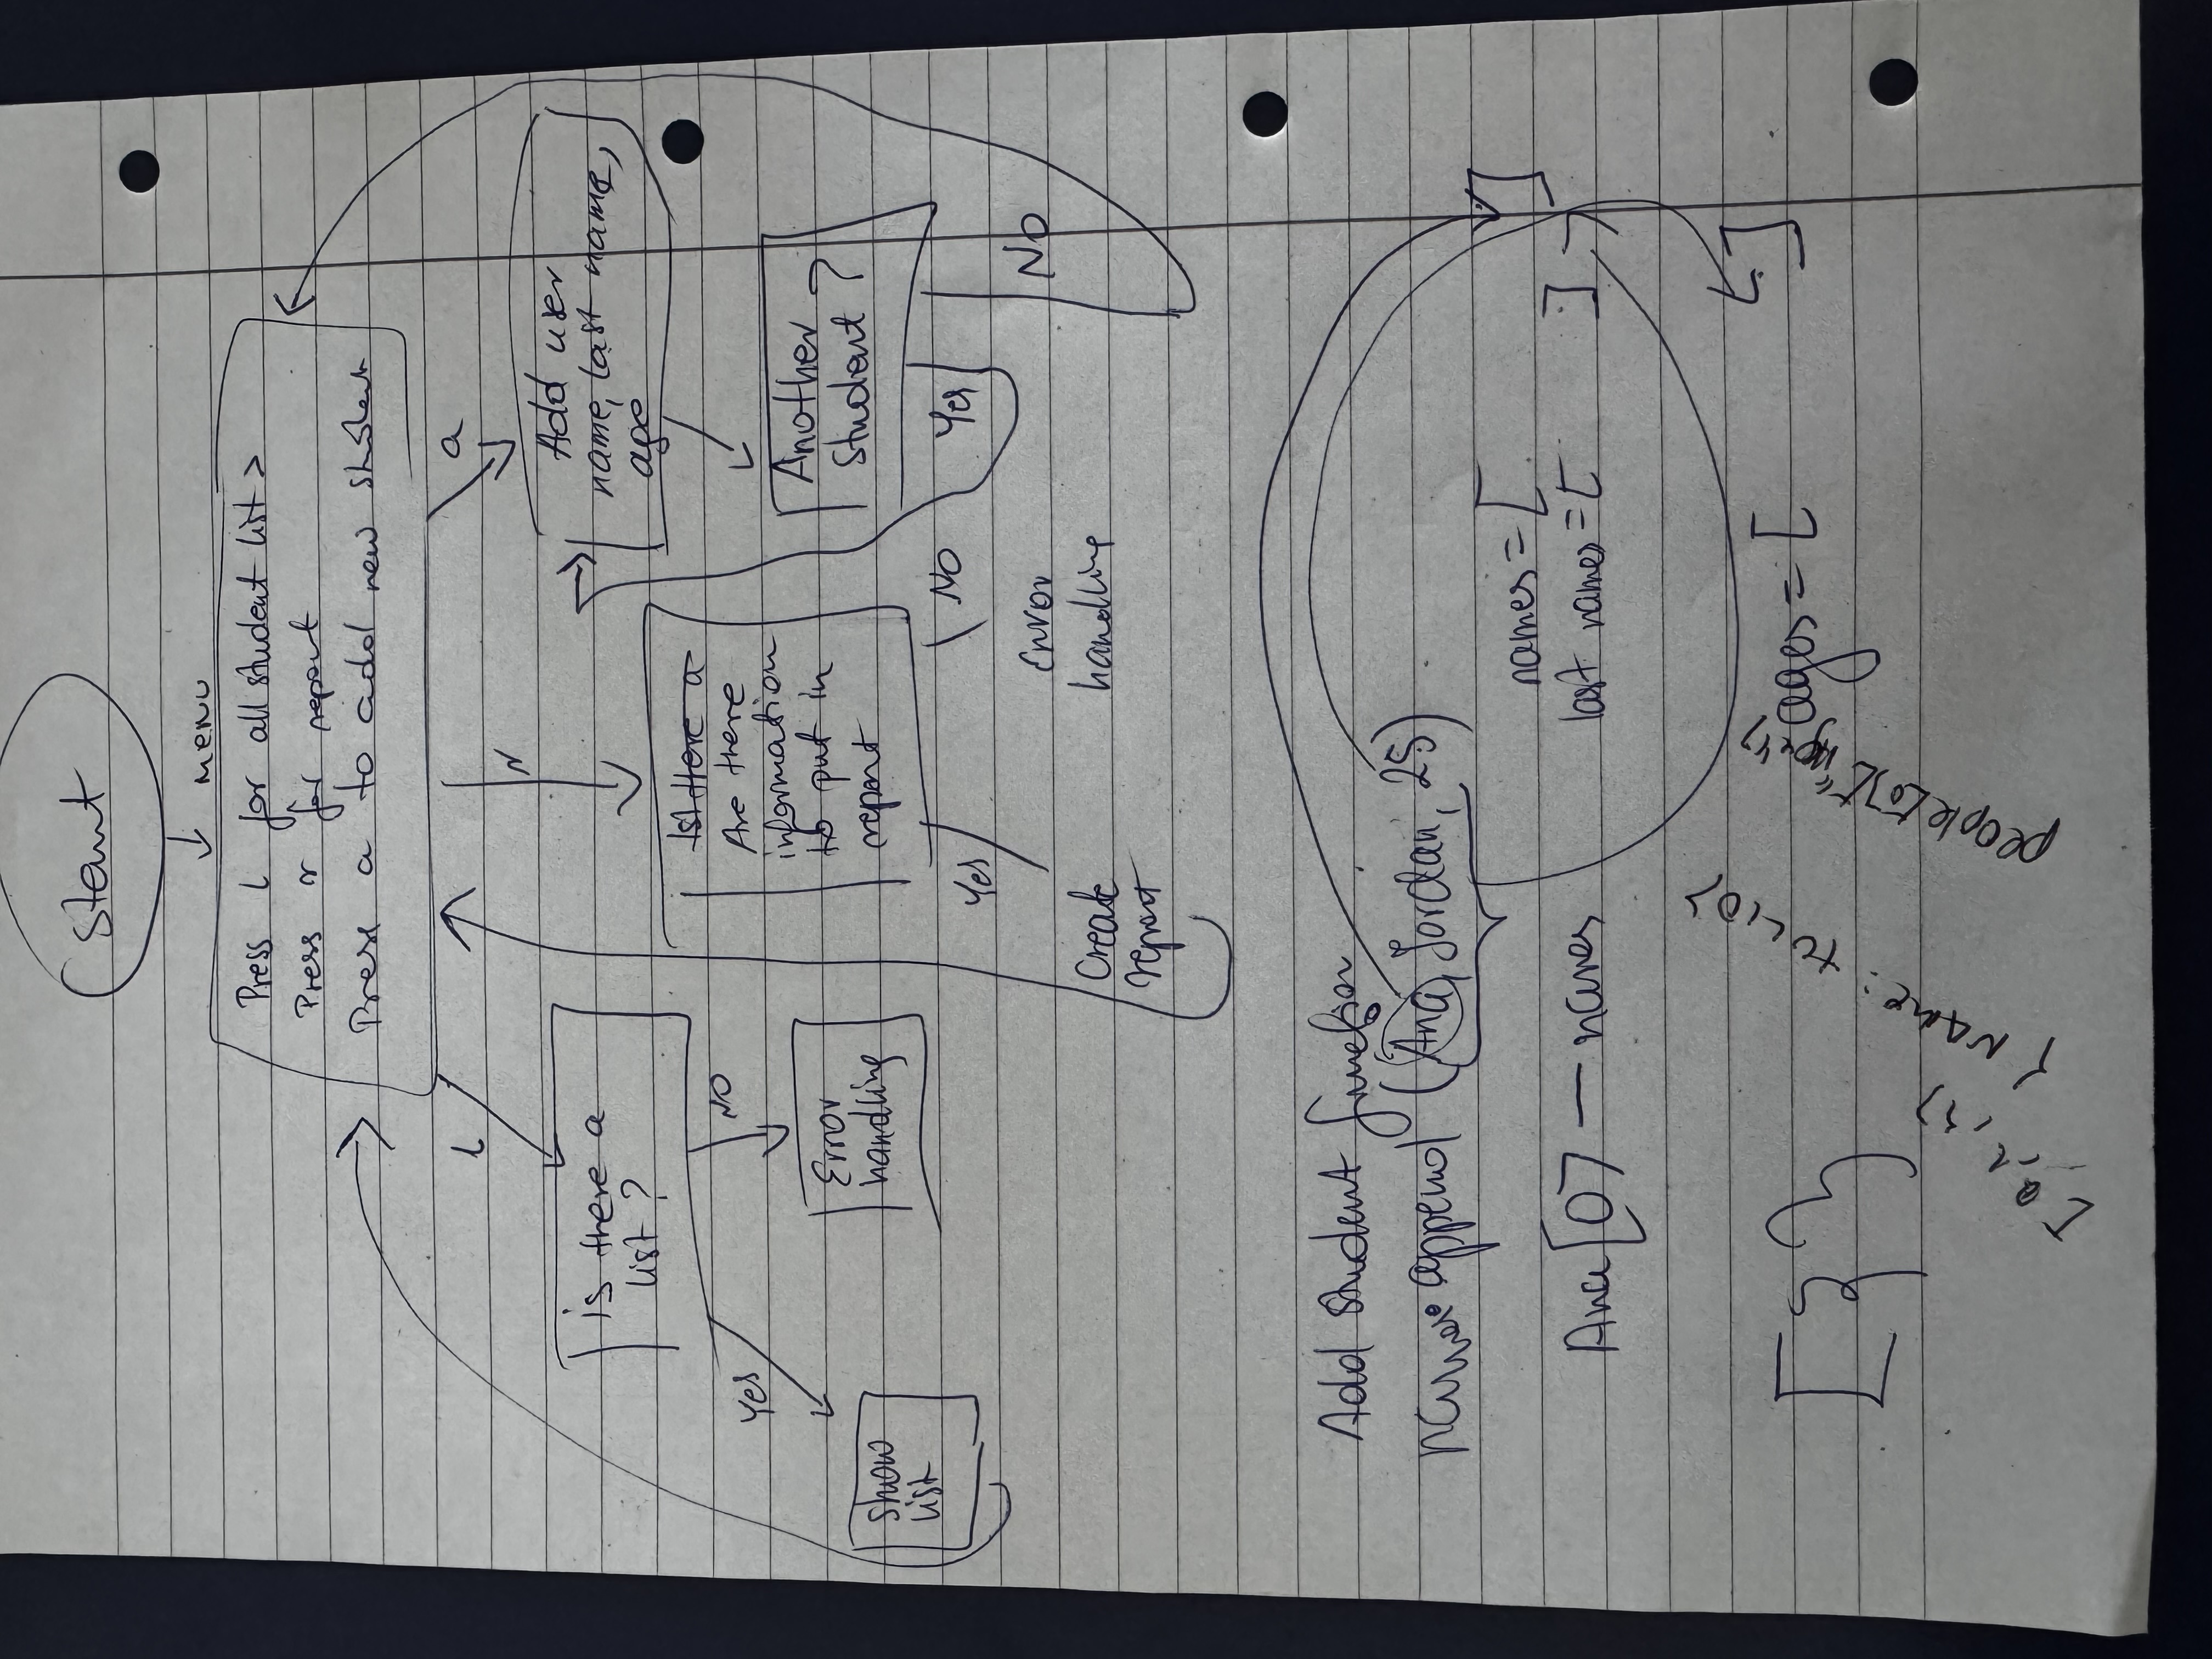 Start
MENU
Press l for all student list >
Press r for report
Press a to add new student
l
r
a
is there a
list ?
Yes
NO
show
list
Error
handling
Ist there a
Are there
information
to put in
report
Yes
NO
Create
report
Error
handling
Add user
name, last name,
age
Another
Student ?
Yes
NO
Add student function
append (Ana, Jordan, 25)
names = [ ]
Ana [0] — names
last names = [ ]
ages = [ ]
[ { }
{ NAME: TULIO }
people[0]